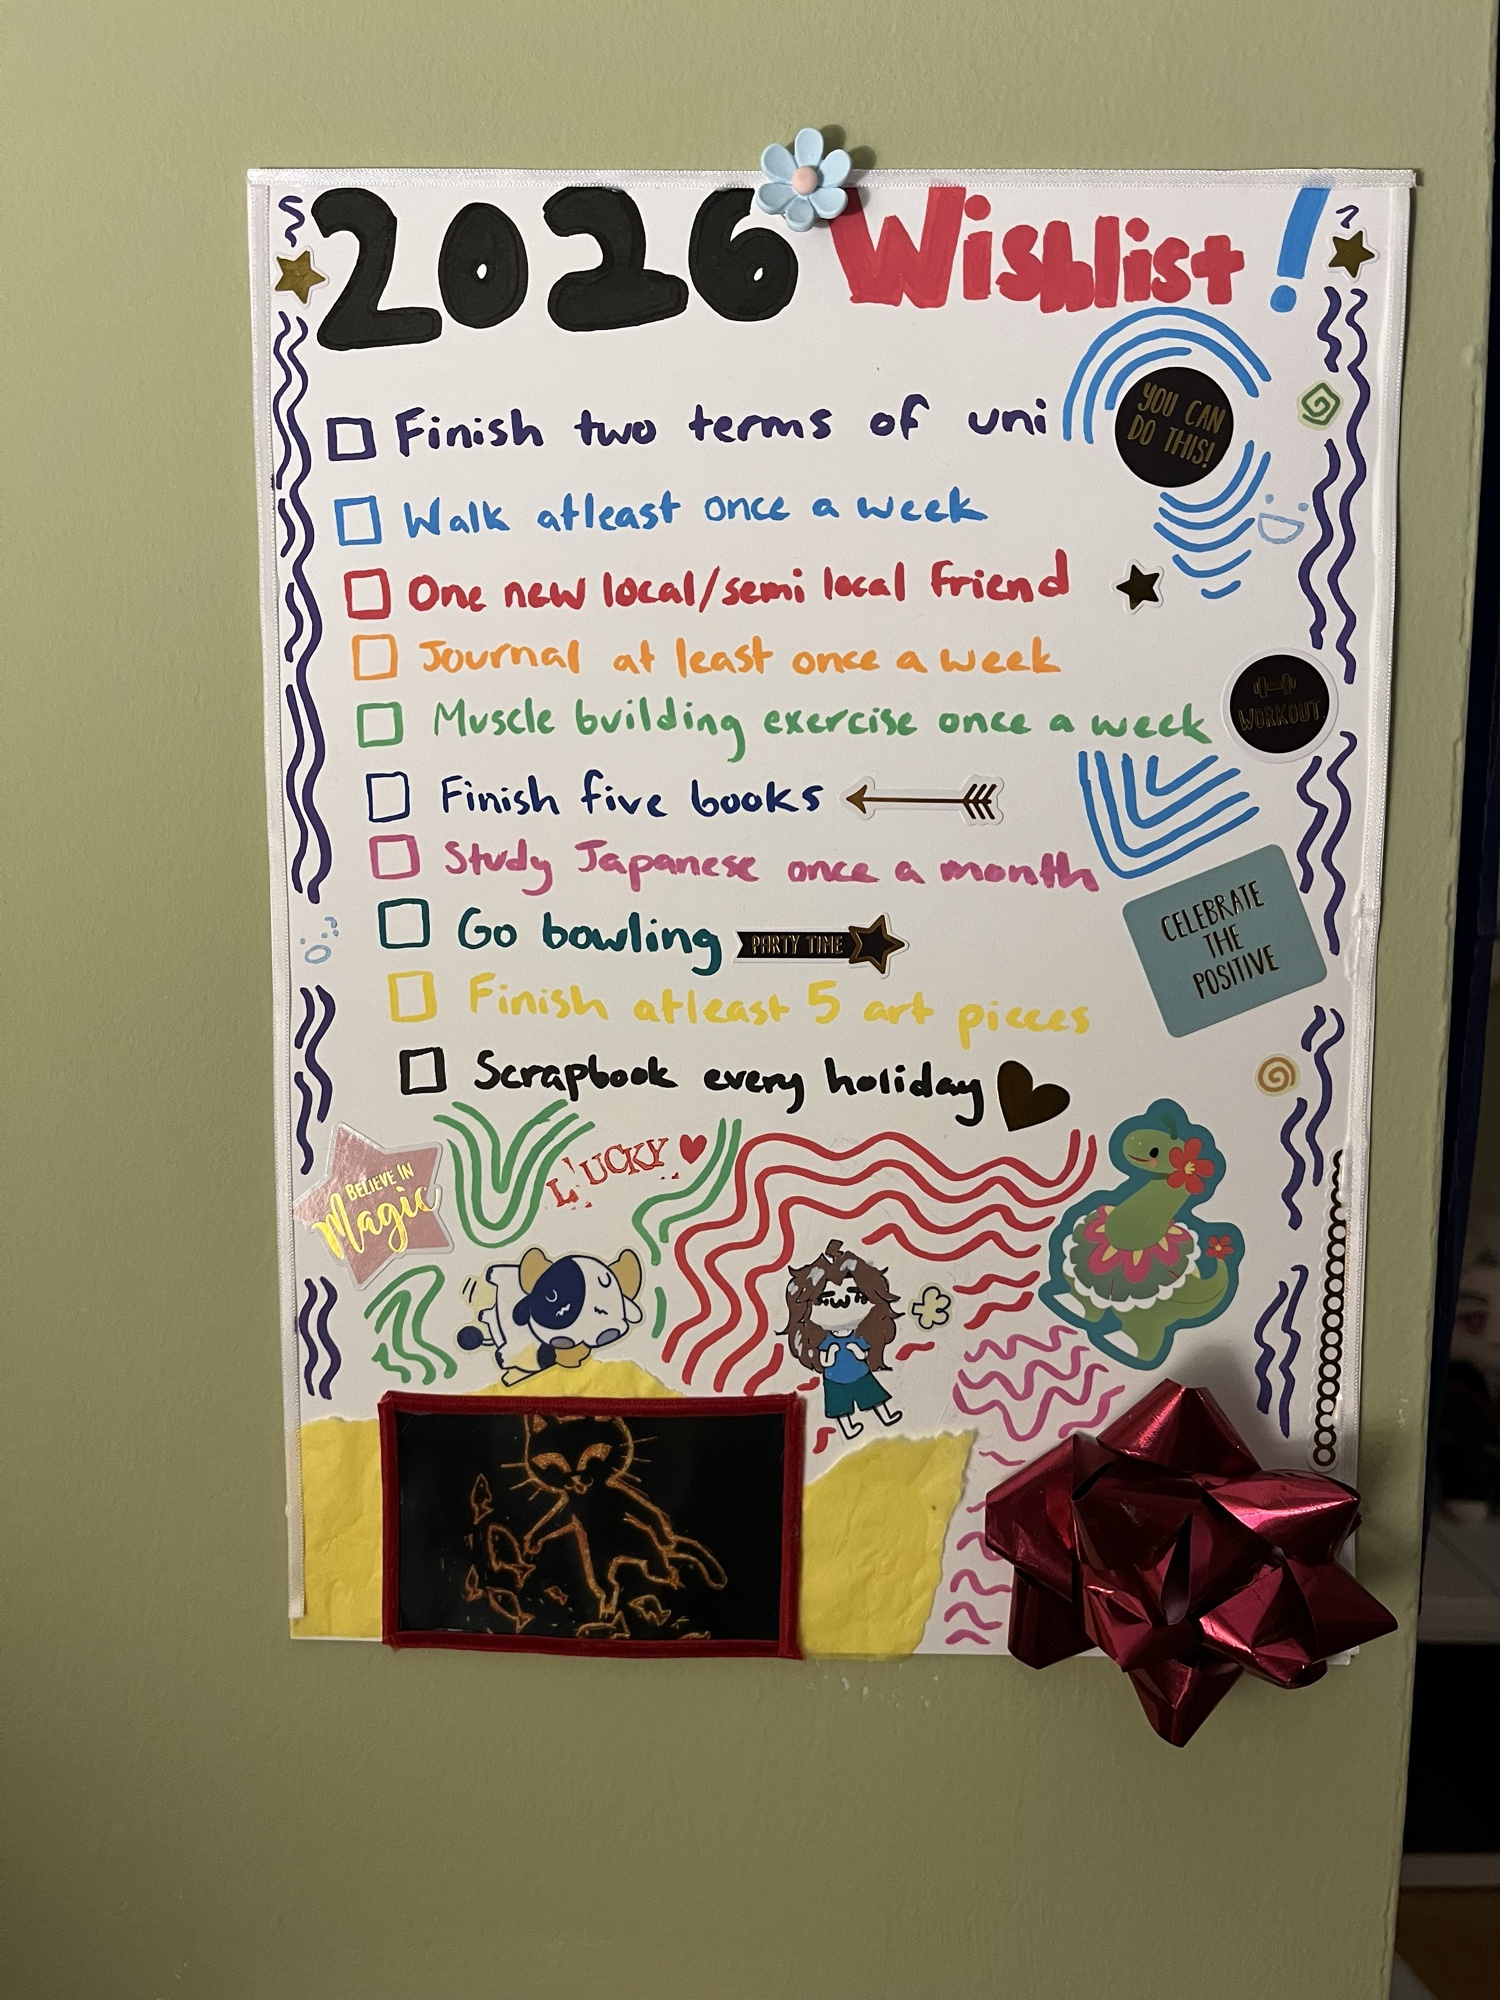 2026 Wishlist!
Finish two terms of uni
YOU CAN
DO THIS!
Walk atleast once a week
One new local/semi local friend
Journal at least once a week
Muscle building exercise once a week
WORKOUT
Finish five books
Study Japanese once a month
CELEBRATE
THE
POSITIVE
Go bowling
PARTY TIME
Finish atleast 5 art pieces
Scrapbook every holiday
BELIEVE IN
Magic
LUCKY